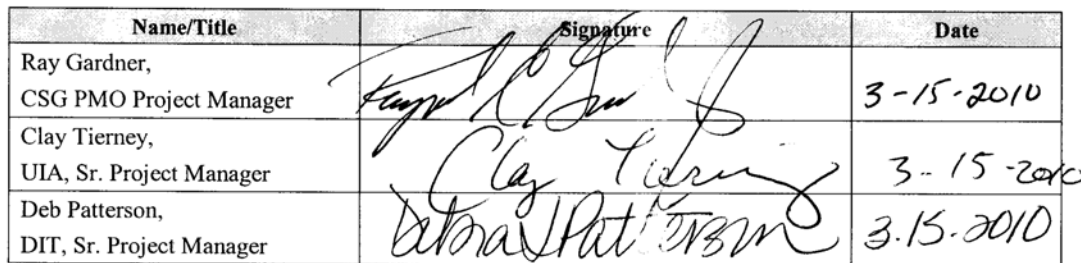 Name/Title Signature Date
Ray Gardner,
CSG PMO Project Manager 3-15-2010
Clay Tierney,
UIA, Sr. Project Manager Clay Tierney 3-15-2010
Deb Patterson,
DIT, Sr. Project Manager Debra J Patterson 3.15.2010